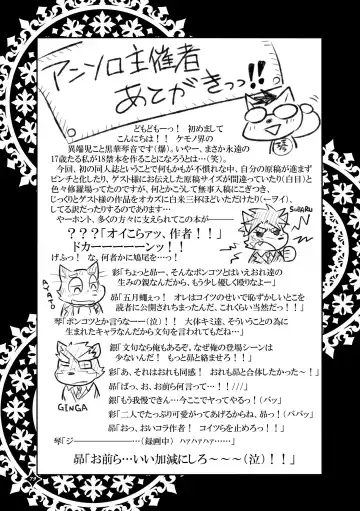 アンソロ主催者
あとがきっ!!
どもどもーっ！ 初めまして
こんにちは！！ ケモノ界の
異端児こと黒華琴音です（爆）。いやー、まさか永遠の
17歳たる私が18禁本を作ることになろうとは…（笑）。
今回、初の同人誌ということで何もかもが不慣れな中、自分の原稿が進まず
ピンチと化したり、ゲスト様にお伝えした原稿サイズが間違っていたり（白目）と
色々修羅場ってたのですが、何とかこうして無事入稿にこぎつき、
じっくりとゲスト様の作品をオカズに白米三杯ほどいただけたり（ーヲイ）、
してる訳だったりするのであります…
やーホント、多くの方々に支えられてこの本が――
？？？「オイこらァッ、作者！！」
ドカーーーーーンッ！！
げふっ！ な、何者かに鳩尾を…っ！
SUBARU
彩「ちょっと昴ー、そんなポンコツとはいえおれ達の
生みの親なんだから、もう少し優しく殴りなよー」
昴「五月蠅ぇっ！ オレはコイツのせいで恥ずかしいとこを
読者に公開されちまったんだ、これくらい当然だっ！！」
琴「ポンコツとか言うなーー（泣）！！ 大体キミ達、そういうことの為に
生まれたキャラなんだから文句を言われてもだね…」
銀「文句なら俺もあるぞ、なぜ俺の登場シーンは
少ないんだ！ もっと昴と絡ませろ！！」
GINGA
彩「あ、それはおれも同感！ おれも昴と合体したかったー！」
昴「ばっ、お、お前ら何言って…！！///」
銀「もう我慢できん…今ここでヤってやるっ！（バッ）
彩「二人でたっぷり可愛がってあげるからね、昴っ！（バッ）
昴「おっ、おいコラ作者！ コイツらを止めろっ！！」
琴「ジーーーーーーー…（録画中） ﾊｧﾊｧﾊｧﾊｧ……」
昴「お前ら…いい加減にしろ～～～（泣）！！」